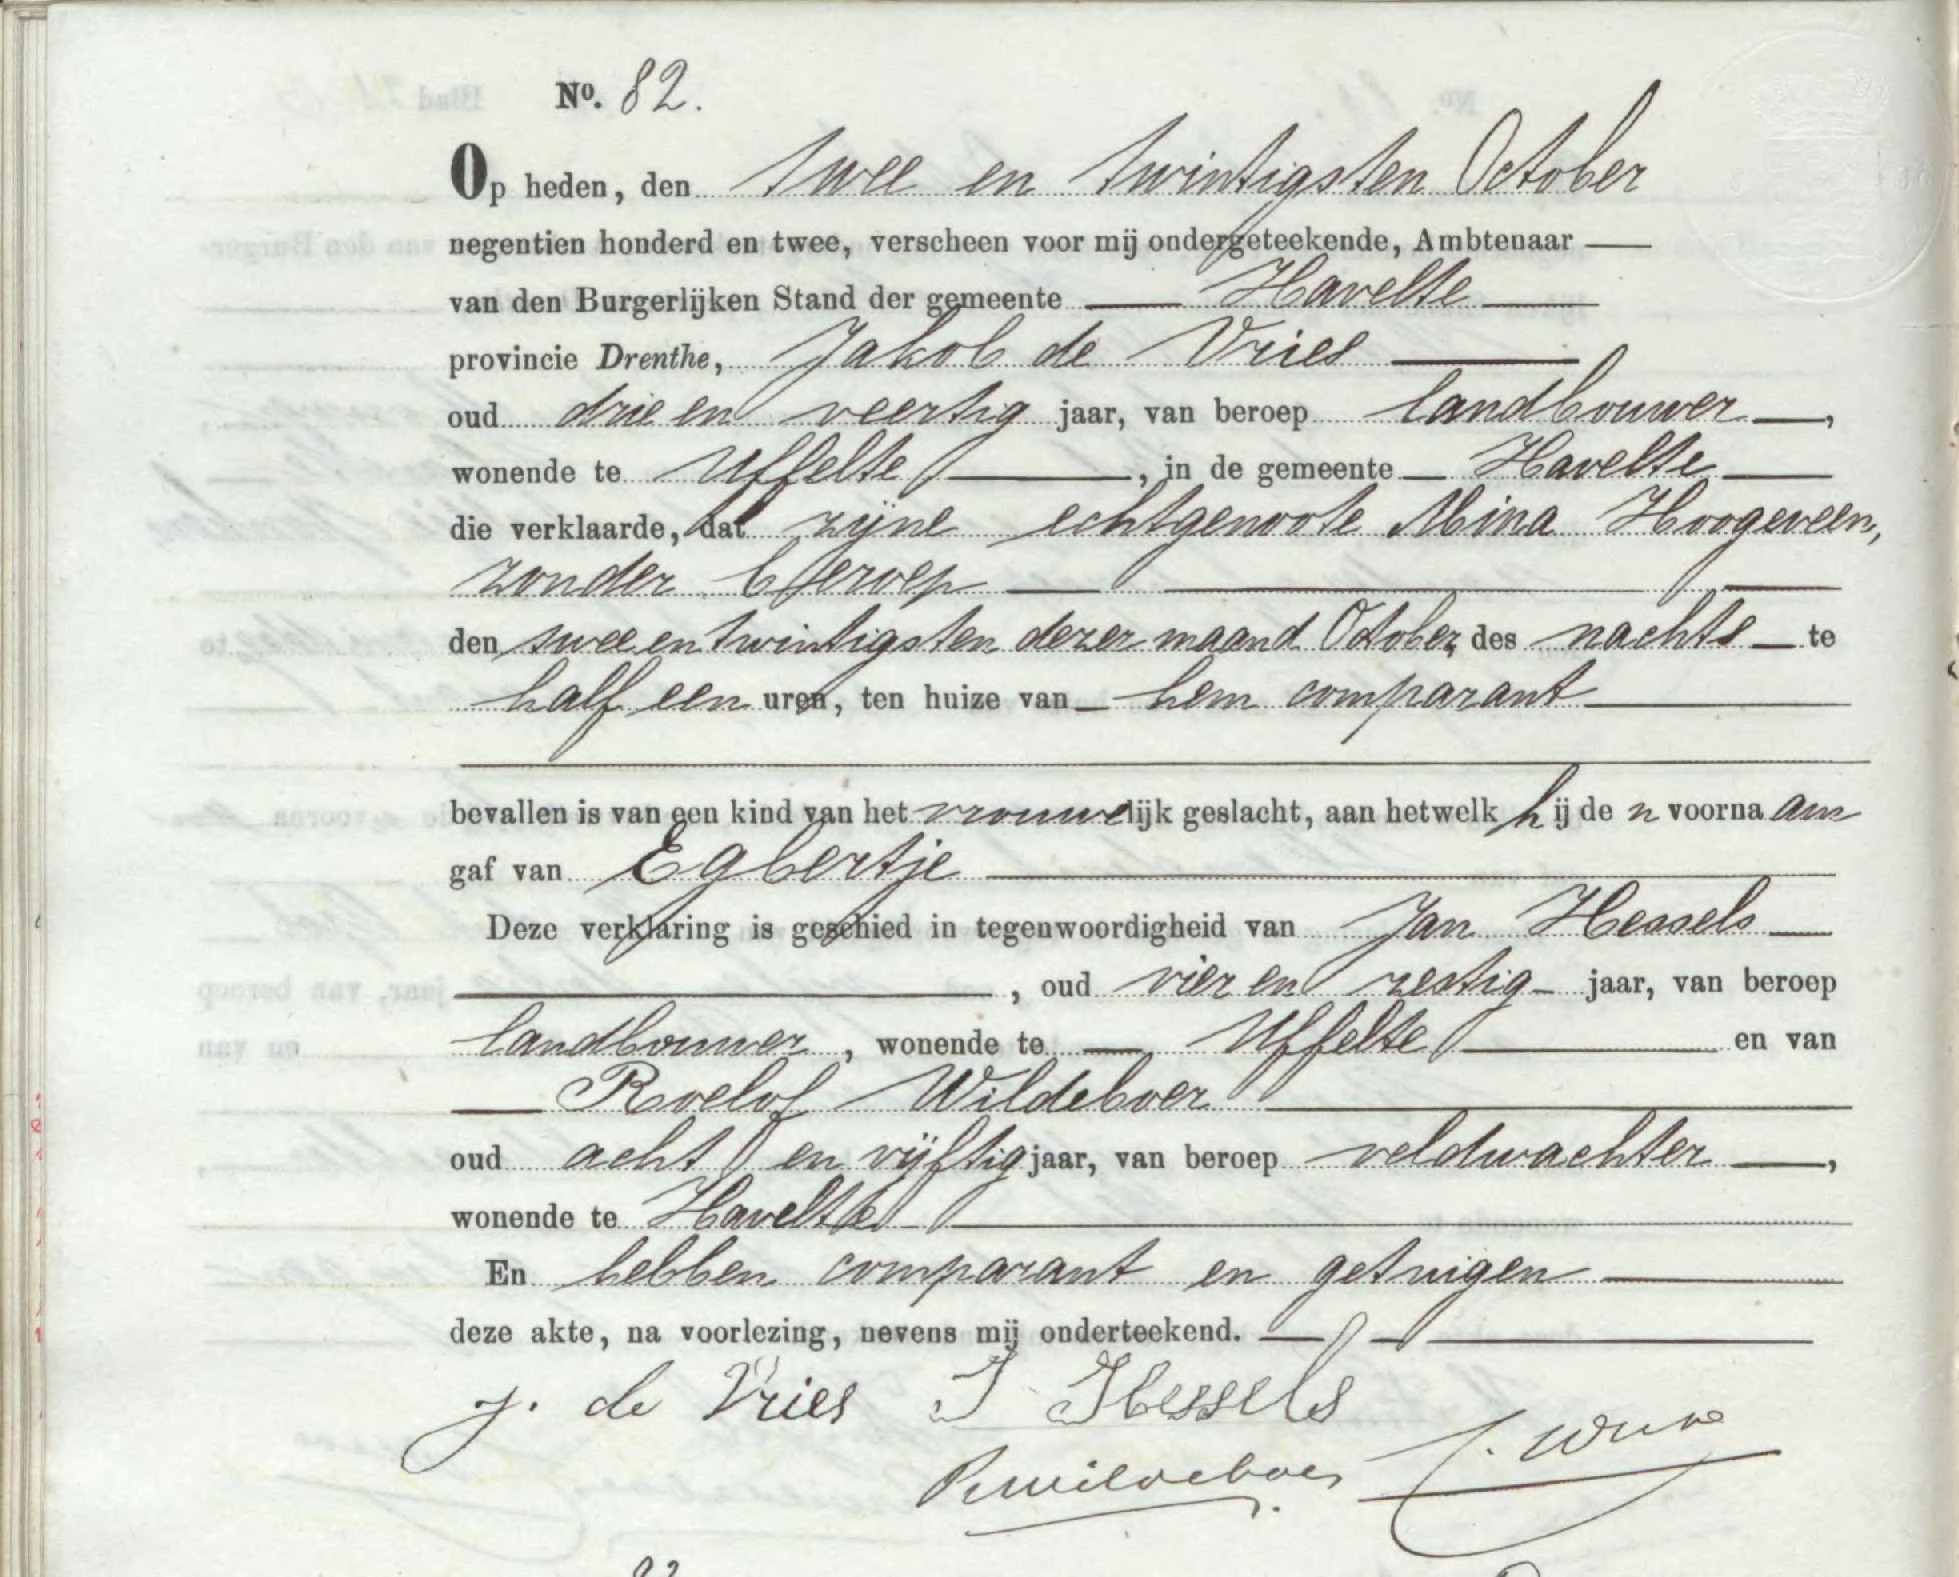 No. 82.
Op heden, den twee en twintigsten October
negentien honderd en twee, verscheen voor mij ondergeteekende, Ambtenaar
van den Burgerlijken Stand der gemeente Havelte
provincie Drenthe, Jakob de Vries
oud drie en veertig jaar, van beroep landbouwer,
wonende te Uffelte, in de gemeente Havelte
die verklaarde, dat zijne echtgenoote Mina Hoogeveen,
zonder beroep
den twee en twintigsten dezer maand October, des nachts te
half een uren, ten huize van hem comparant
bevallen is van een kind van het vrouwelijk geslacht, aan hetwelk hij den voornaam
gaf van Egbertje
Deze verklaring is geschied in tegenwoordigheid van Jan Hessels
, oud vier en zestig jaar, van beroep
landbouwer, wonende te Uffelte en van
Roelof Wildeboer
oud acht en vijftig jaar, van beroep veldwachter,
wonende te Havelte
En hebben comparant en getuigen
deze akte, na voorlezing, nevens mij onderteekend.
J. de Vries J Hessels
R Wildeboer